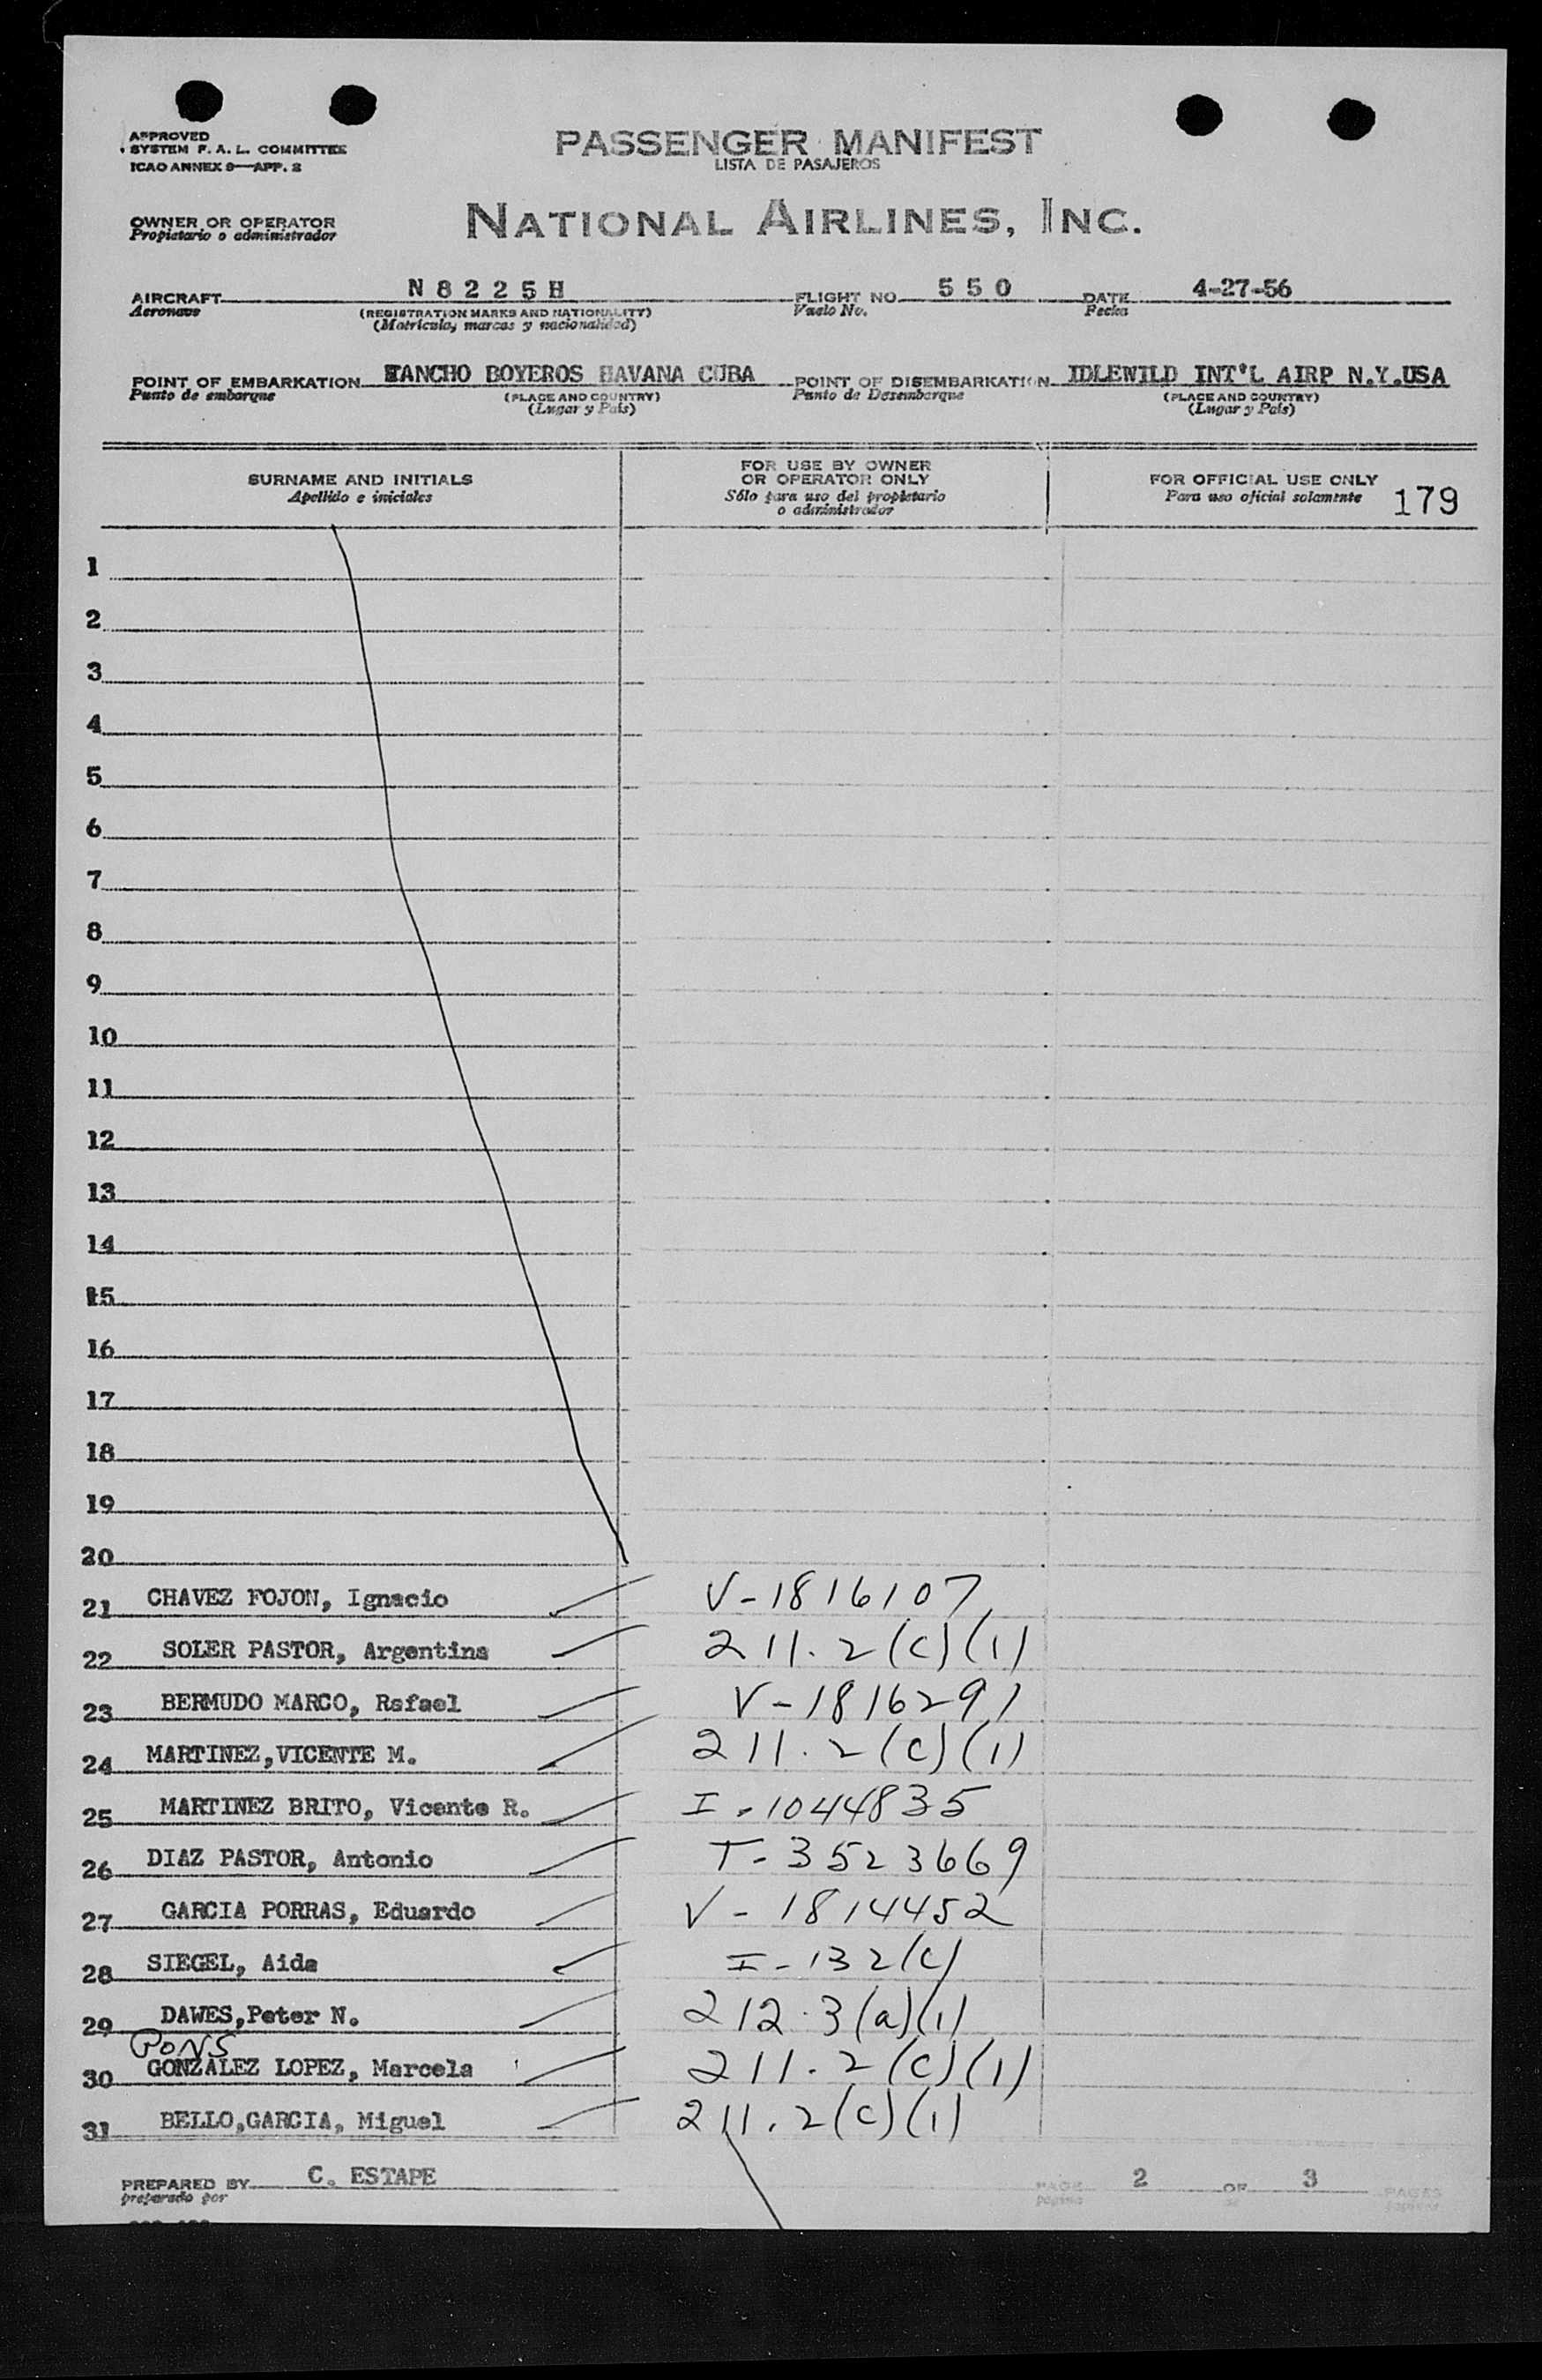 APPROVED
SYSTEM F. A. L. COMMITTEE
ICAO ANNEX 9—APP. 2
PASSENGER MANIFEST
LISTA DE PASAJEROS
OWNER OR OPERATOR
Propietario o administrador
NATIONAL AIRLINES, INC.
AIRCRAFT N 8 2 2 5 H FLIGHT NO. 5 5 0 DATE 4-27-56
Aeronave (REGISTRATION MARKS AND NATIONALITY) Vuelo No. Fecha
(Matricula, marcas y nacionalidad)
POINT OF EMBARKATION RANCHO BOYEROS HAVANA CUBA POINT OF DISEMBARKATION IDLEWILD INT'L AIRP N.Y.USA
Punto de embarque (PLACE AND COUNTRY) Punto de Desembarque (PLACE AND COUNTRY)
(Lugar y País) (Lugar y País)
SURNAME AND INITIALS
Apellido e iniciales
FOR USE BY OWNER
OR OPERATOR ONLY
Sólo para uso del propietario
o administrador
FOR OFFICIAL USE ONLY
Para uso oficial solamente 179
1
2
3
4
5
6
7
8
9
10
11
12
13
14
15
16
17
18
19
20
21 CHAVEZ FOJON, Ignacio V-1816107
22 SOLER PASTOR, Argentina 211.2(c)(1)
23 BERMUDO MARCO, Rafael V-1816291
24 MARTINEZ,VICENTE M. 211.2(c)(1)
25 MARTINEZ BRITO, Vicente R. I-1044835
26 DIAZ PASTOR, Antonio T-3523669
27 GARCIA PORRAS, Eduardo V-1814452
28 SIEGEL, Aida I-132(c)
29 DAWES,Peter N. 212.3(a)(1)
PONS
30 GONZALEZ LOPEZ, Marcela 211.2(c)(1)
31 BELLO,GARCIA, Miguel 211.2(c)(1)
PREPARED BY C. ESTAPE PAGE 2 OF 3 PAGES
preparado por página